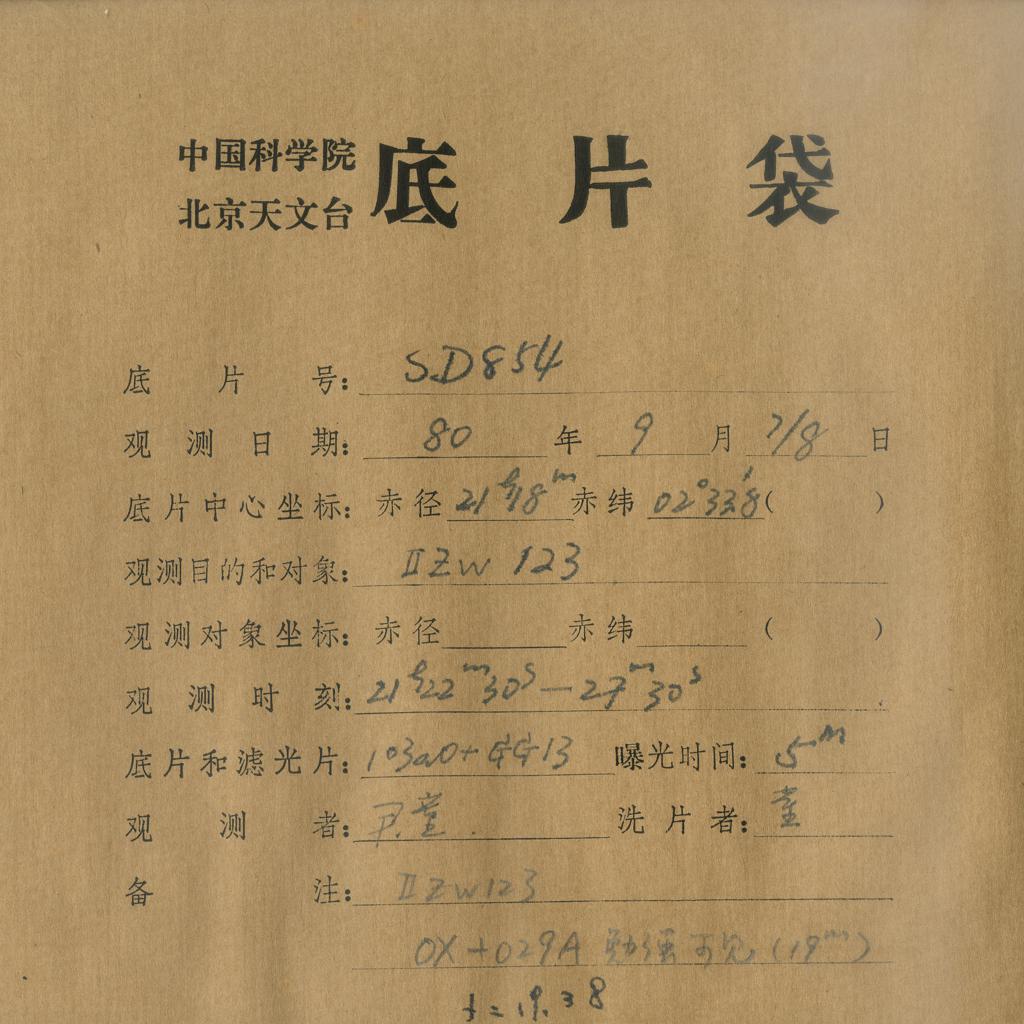 中国科学院
北京天文台
底片袋
底片号: SD854
观测日期: 80年9月7/8日
底片中心坐标: 赤径21ʰ18ᵐ赤纬02°33′.8( )
观测目的和对象: IIZw 123
观测对象坐标: 赤径 赤纬 ( )
观测时刻: 21ʰ22ᵐ30ˢ—27ᵐ30ˢ
底片和滤光片: 103aO+GG13 曝光时间: 5ᵐ
观测者: 尹.童. 洗片者: 童
备注: IIZw123
OX+029A 勉强可见(19ᵐ)
t=19.38